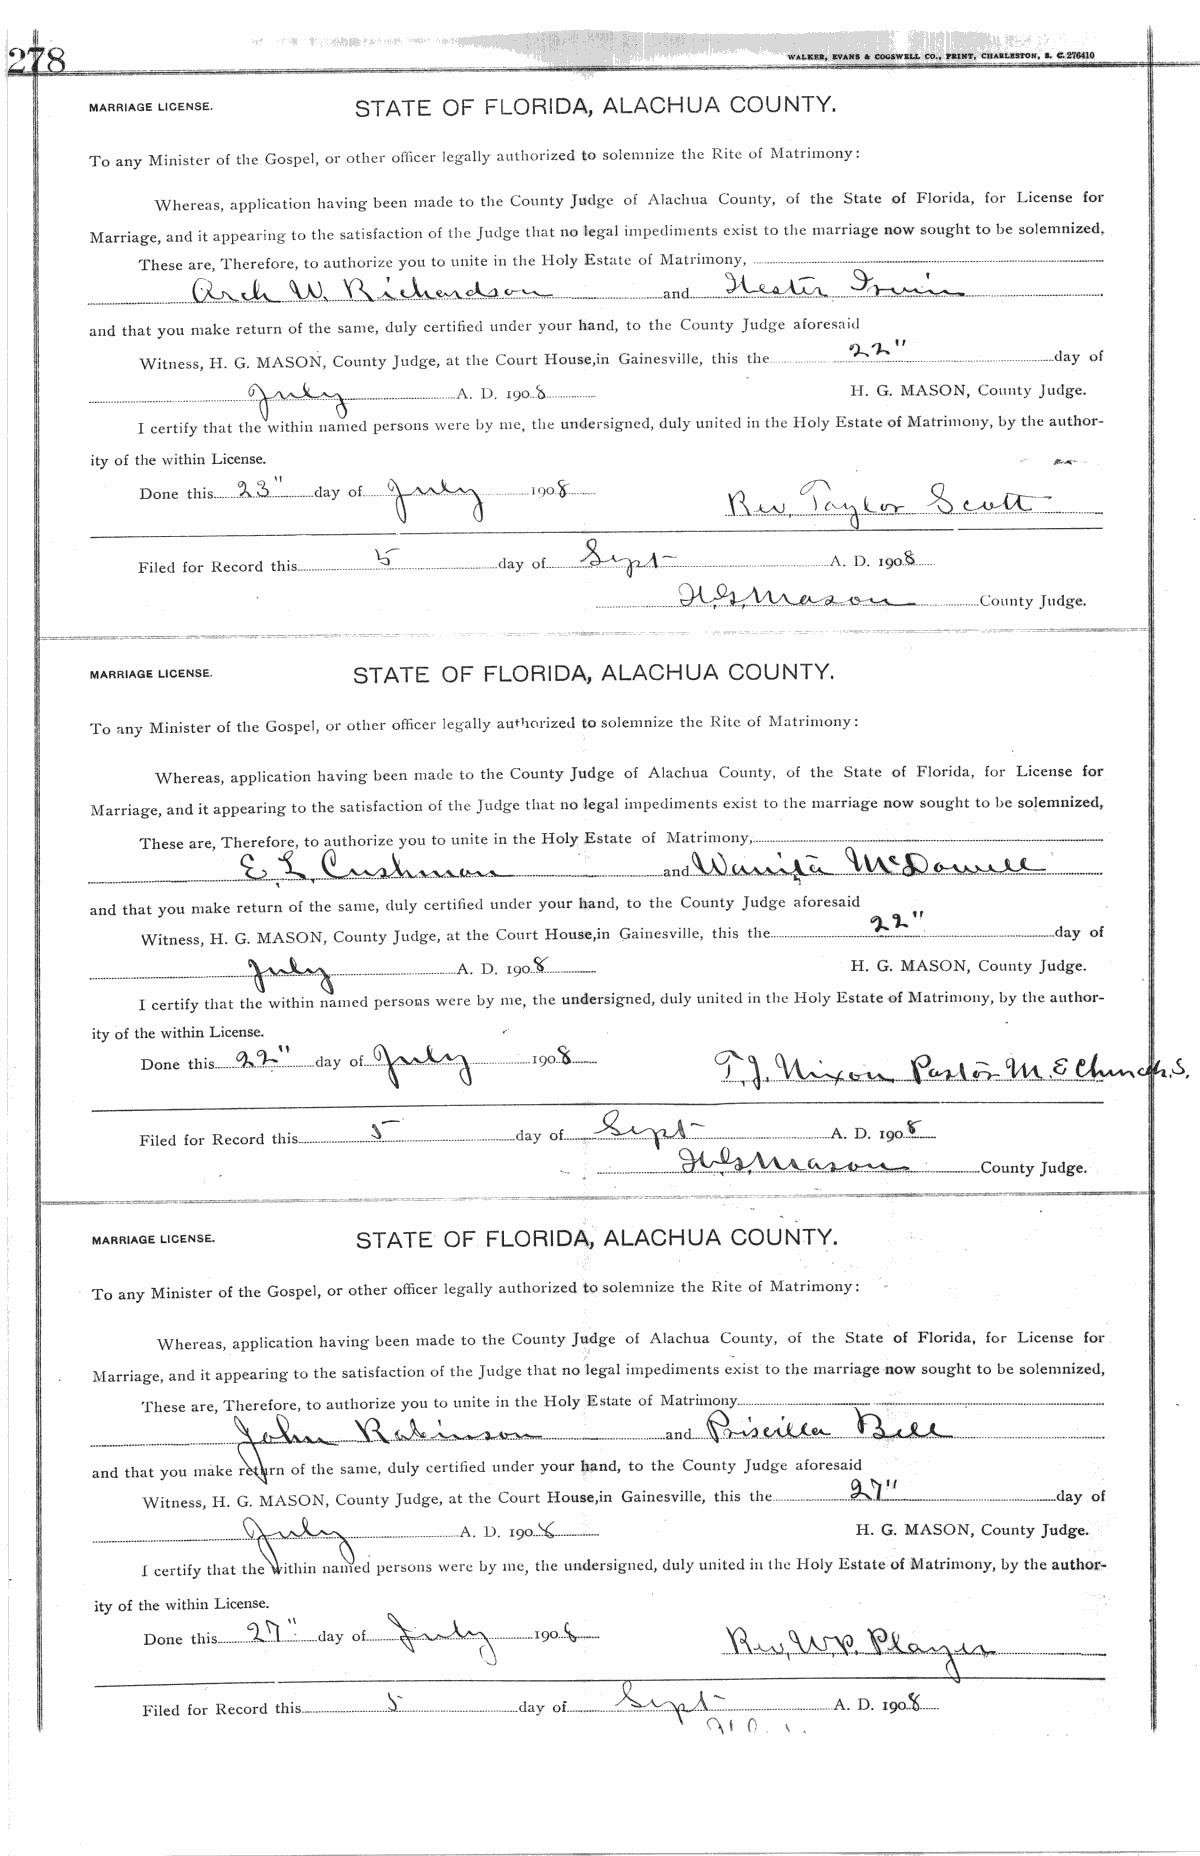 278
WALKER, EVANS & COGSWELL CO., PRINT, CHARLESTON, S. C. 276410
MARRIAGE LICENSE. STATE OF FLORIDA, ALACHUA COUNTY.
To any Minister of the Gospel, or other officer legally authorized to solemnize the Rite of Matrimony:
Whereas, application having been made to the County Judge of Alachua County, of the State of Florida, for License for
Marriage, and it appearing to the satisfaction of the Judge that no legal impediments exist to the marriage now sought to be solemnized,
These are, Therefore, to authorize you to unite in the Holy Estate of Matrimony,
Arch W. Richardson and Hester Irwin
and that you make return of the same, duly certified under your hand, to the County Judge aforesaid
Witness, H. G. MASON, County Judge, at the Court House, in Gainesville, this the 22" day of
July A. D. 1908 H. G. MASON, County Judge.
I certify that the within named persons were by me, the undersigned, duly united in the Holy Estate of Matrimony, by the author-
ity of the within License.
Done this 23" day of July 1908
Rev. Taylor Scott
Filed for Record this 5 day of Sept A. D. 1908
H.G. Mason County Judge.
MARRIAGE LICENSE. STATE OF FLORIDA, ALACHUA COUNTY.
To any Minister of the Gospel, or other officer legally authorized to solemnize the Rite of Matrimony:
Whereas, application having been made to the County Judge of Alachua County, of the State of Florida, for License for
Marriage, and it appearing to the satisfaction of the Judge that no legal impediments exist to the marriage now sought to be solemnized,
These are, Therefore, to authorize you to unite in the Holy Estate of Matrimony,
E. L. Cushman and Wanita McDowell
and that you make return of the same, duly certified under your hand, to the County Judge aforesaid
Witness, H. G. MASON, County Judge, at the Court House, in Gainesville, this the 22" day of
July A. D. 1908 H. G. MASON, County Judge.
I certify that the within named persons were by me, the undersigned, duly united in the Holy Estate of Matrimony, by the author-
ity of the within License.
Done this 22" day of July 1908
T. J. Nixon Pastor M. E Church. S.
Filed for Record this 5 day of Sept A. D. 1908
H.G. Mason County Judge.
MARRIAGE LICENSE. STATE OF FLORIDA, ALACHUA COUNTY.
To any Minister of the Gospel, or other officer legally authorized to solemnize the Rite of Matrimony:
Whereas, application having been made to the County Judge of Alachua County, of the State of Florida, for License for
Marriage, and it appearing to the satisfaction of the Judge that no legal impediments exist to the marriage now sought to be solemnized,
These are, Therefore, to authorize you to unite in the Holy Estate of Matrimony
John Robinson and Priscilla Bell
and that you make return of the same, duly certified under your hand, to the County Judge aforesaid
Witness, H. G. MASON, County Judge, at the Court House, in Gainesville, this the 27" day of
July A. D. 1908 H. G. MASON, County Judge.
I certify that the within named persons were by me, the undersigned, duly united in the Holy Estate of Matrimony, by the author-
ity of the within License.
Done this 27" day of July 1908
Rev. W.P. Player
Filed for Record this 5 day of Sept A. D. 1908